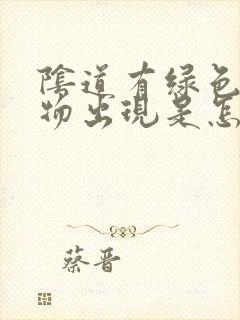 陰道有绿色
物出现是怎
蔡晋